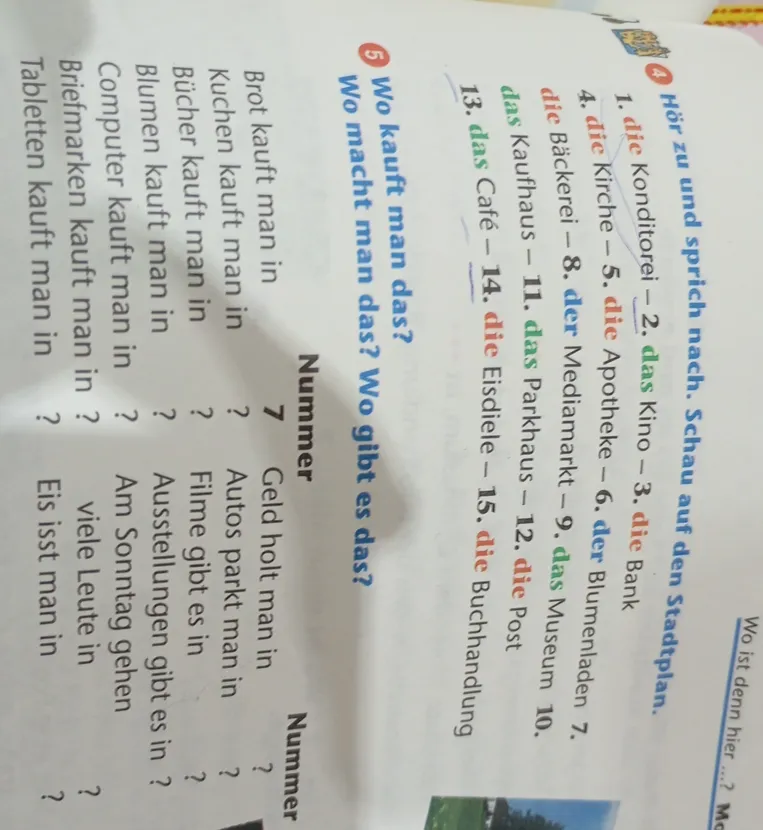 Wo ist denn hier ...?
4 Hör zu und sprich nach. Schau auf den Stadtplan.
1. die Konditorei – 2. das Kino – 3. die Bank
4. die Kirche – 5. die Apotheke – 6. der Blumenladen 7.
die Bäckerei – 8. der Mediamarkt – 9. das Museum 10.
das Kaufhaus – 11. das Parkhaus – 12. die Post
13. das Café – 14. die Eisdiele – 15. die Buchhandlung
5 Wo kauft man das?
Wo macht man das? Wo gibt es das?
Nummer
Brot kauft man in 7
Kuchen kauft man in ?
Bücher kauft man in ?
Blumen kauft man in ?
Computer kauft man in ?
Briefmarken kauft man in ?
Tabletten kauft man in ?
Nummer
Geld holt man in ?
Autos parkt man in ?
Filme gibt es in ?
Ausstellungen gibt es in ?
Am Sonntag gehen
viele Leute in ?
Eis isst man in ?